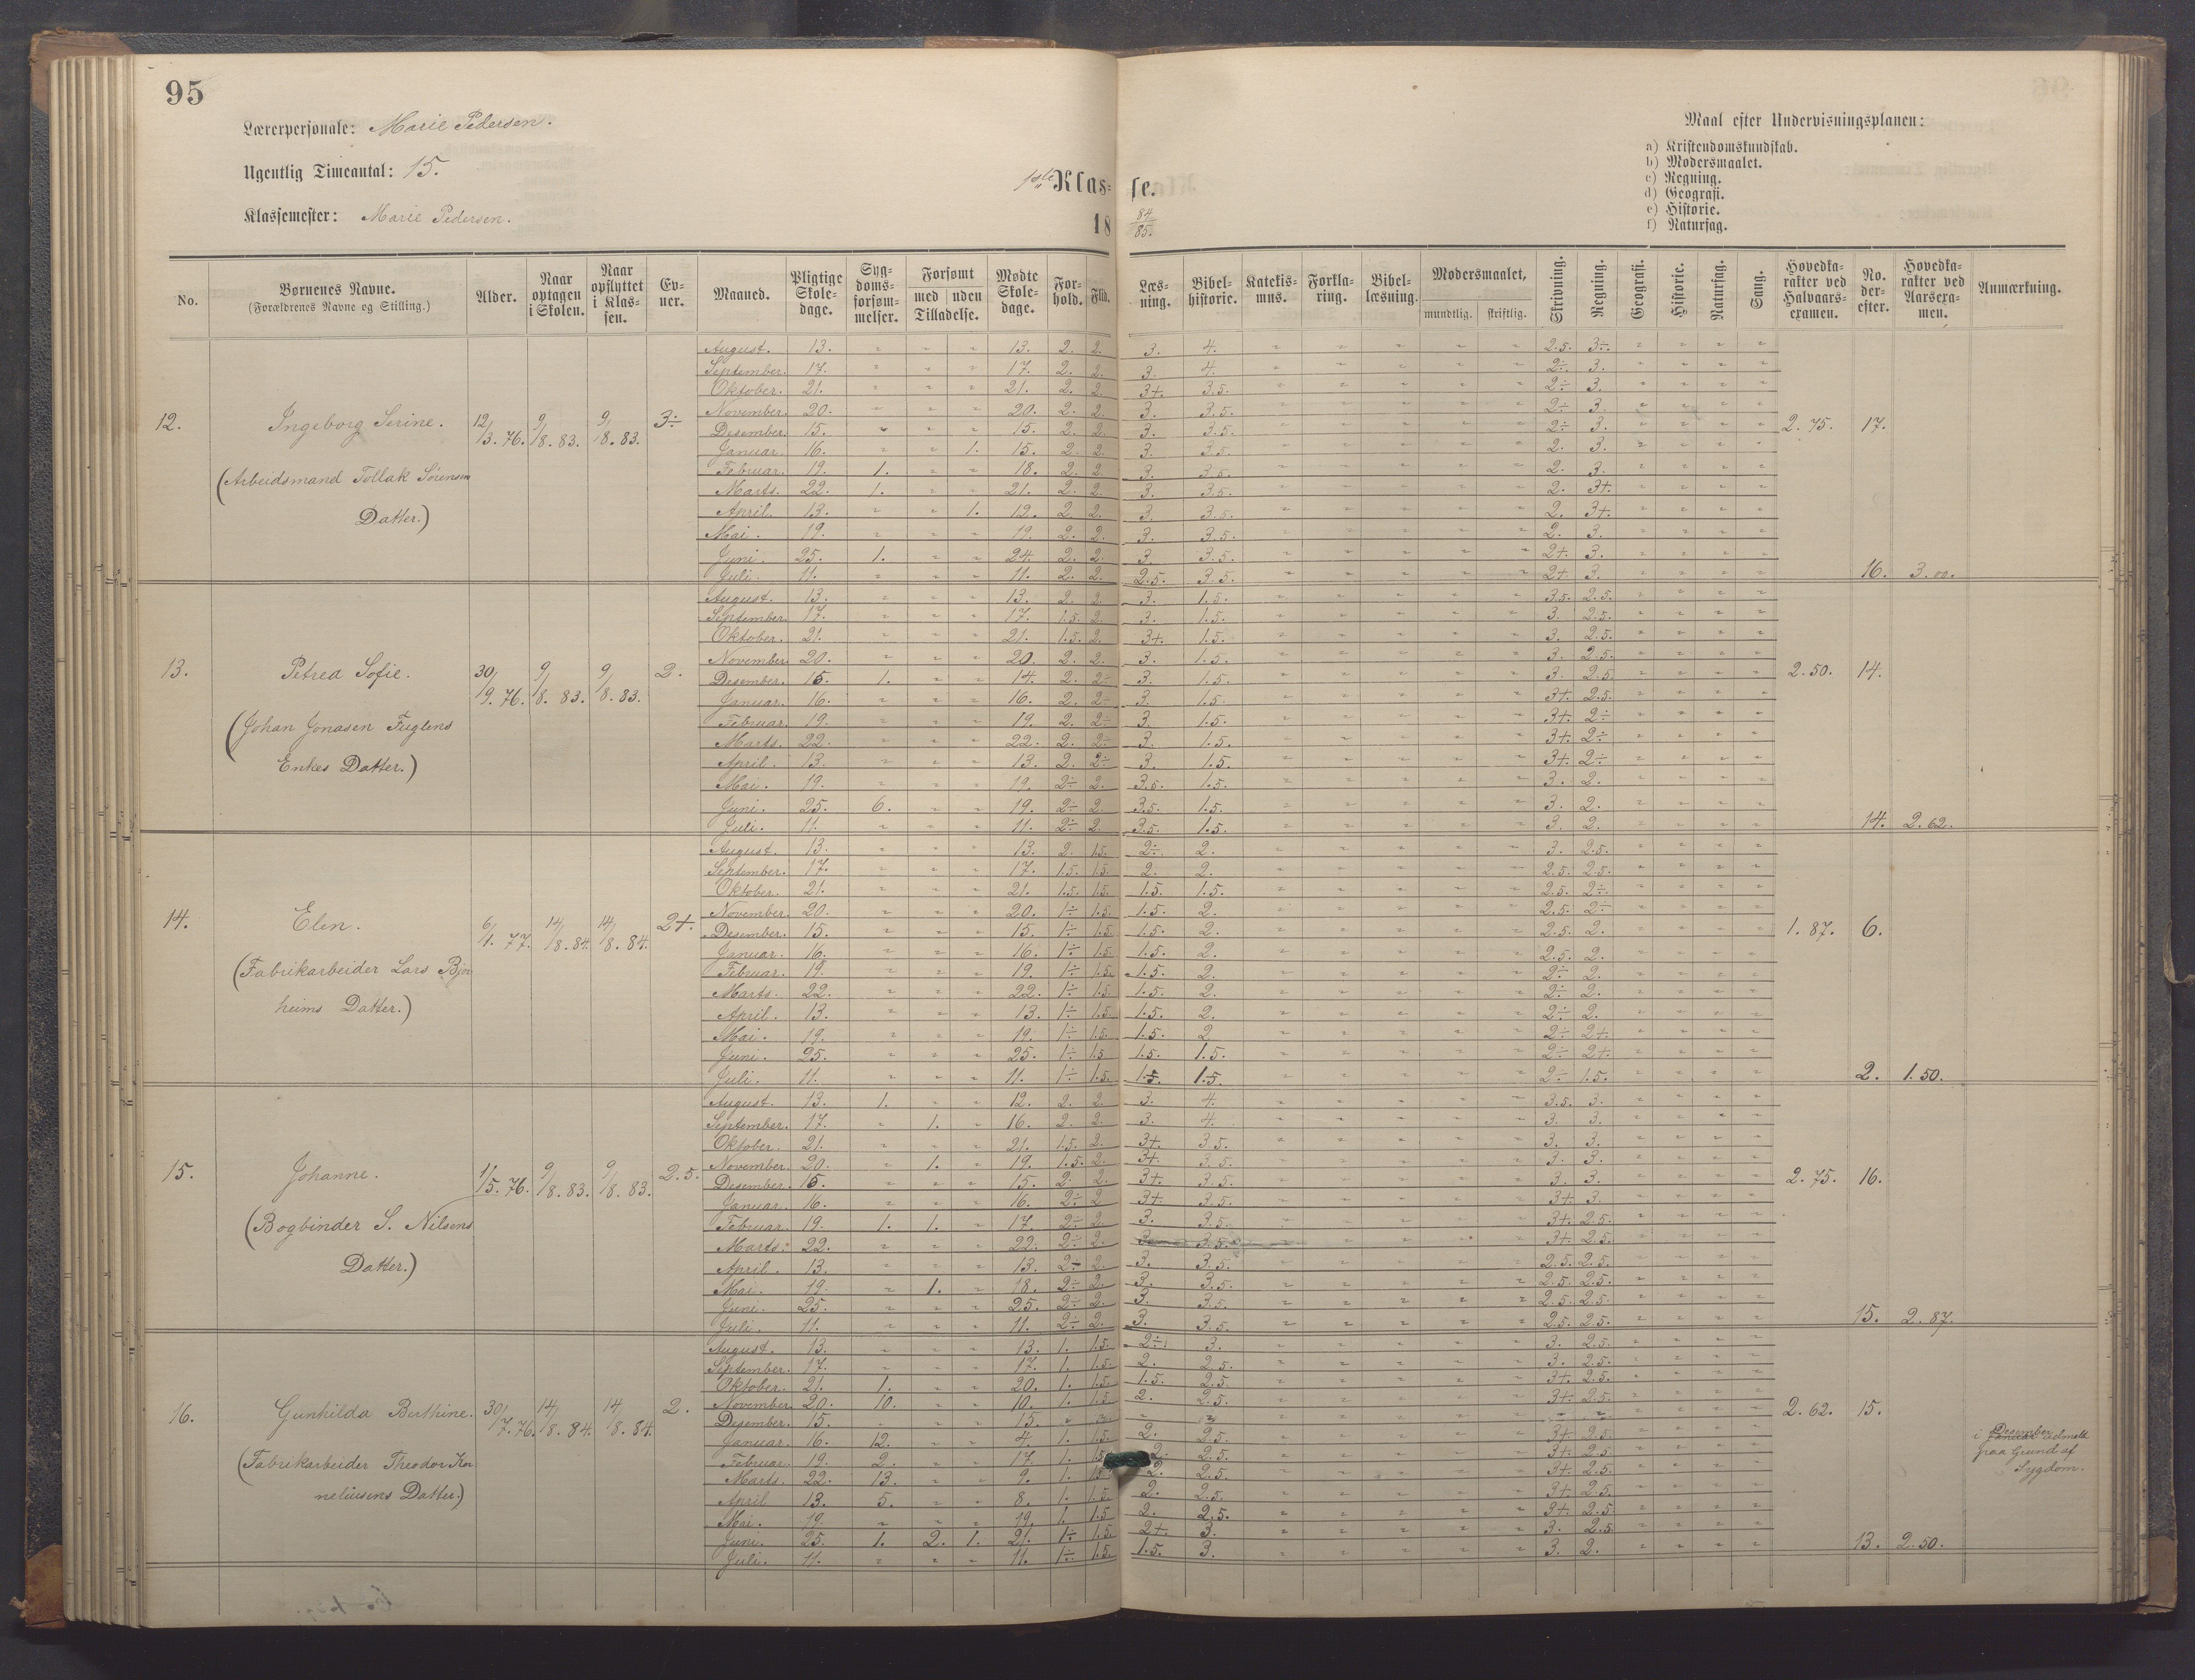 95
Lærerpersonale: Marie Pedersen.
Ugentlig Timeantal: 15.
Klassemester: Marie Pedersen.
1ste Klasse.
18 84/85.
Maal efter Undervisningsplanen:
a) Kristendomskundskab.
b) Modersmaalet.
c) Regning.
d) Geografi.
e) Historie.
f) Naturfag.
No. Børnenes Navne. (Forældrenes Navne og Stilling.) Alder. Naar optagen i Skolen. Naar opflyttet i Klassen. Evner. Maaned. Pligtige Skoledage. Sygdomsforsømmelser. Forsømt med uden Tilladelse. Mødte Skoledage. Forhold. Flid. Læsning. Bibelhistorie. Katekismus. Forklaring. Bibellæsning. Modersmaalet, mundtlig. skriftlig. Skrivning. Regning. Geografi. Historie. Naturfag. Sang. Hovedkarakter ved Halvaarsexamen. No. derefter. Hovedkarakter ved Aarsexamen. Anmærkning.
12. Ingeborg Serine. 12/3. 76. 9/8. 83. 9/8. 83. 3÷ 2.75. 17.
(Arbeidsmand Tollak Sørensen
Datter.)
August. 13. " " " 13. 2. 2. 3. 4. " " " " " 2.5. 3÷. " " " "
September. 17. " " " 17. 2. 2. 3. 4. " " " " " 2÷ 3. " " " "
Oktober. 21. " " " 21. 2. 2. 3+. 3.5. " " " " " 2÷ 3. " " " "
November. 20. " " " 20. 2. 2. 3. 3.5. " " " " " 2÷ 3. " " " "
Desember. 15. " " " 15. 2. 2. 3. 3.5. " " " " " 2÷ 3. " " " "
Januar. 16. " " 1. 15. 2. 2. 3. 3.5. " " " " " 2. 3. " " " "
Februar. 19. 1. " " 18. 2. 2. 3. 3.5. " " " " " 2. 3. " " " "
Marts. 22. 1. " " 21. 2. 2. 3. 3.5. " " " " " 2. 3+. " " " "
April. 13. " " 1. 12. 2. 2. 3. 3.5. " " " " " 2. 3+. " " " "
Mai. 19. " " " 19. 2. 2. 3. 3.5. " " " " " 2. 3. " " " "
Juni. 25. 1. " " 24. 2. 2. 3. 3.5. " " " " " 2+. 3. " " " "
Juli. 11. " " " 11. 2. 2. 2.5. 3.5. " " " " " 2+ 3. " " " " 16. 3.00.
13. Petrea Sofie. 30/9. 76. 9/8. 83. 9/8. 83. 2. 2.50. 14.
(Johan Jonasen Fuglens
Enkes Datter.)
August. 13. " " " 13. 2. 2. 3. 1.5. " " " " " 3.5. 2.5. " " " "
September. 17. " " " 17. 1.5. 2. 3. 1.5. " " " " " 3. 2.5. " " " "
Oktober. 21. " " " 21. 1.5. 2. 3+. 1.5. " " " " " 3. 2.5. " " " "
November. 20. " " " 20. 2. 2. 3. 1.5. " " " " " 3. 2.5. " " " "
Desember. 15. 1. " " 14. 2. 2÷ 3. 1.5. " " " " " 3. 2.5. " " " "
Januar. 16. " " " 16. 2. 2÷ 3. 1.5. " " " " " 3+. 2.5. " " " "
Februar. 19. " " " 19. 2. 2÷ 3. 1.5. " " " " " 3+. 2÷ " " " "
Marts. 22. " " " 22. 2. 2÷ 3. 1.5. " " " " " 3+. 2÷ " " " "
April. 13. " " " 13. 2. 2÷ 3. 1.5. " " " " " 3+. 2÷ " " " "
Mai. 19. " " " 19. 2÷ 2. 3.5. 1.5. " " " " " 3. 2. " " " "
Juni. 25. 6. " " 19. 2÷ 2. 3.5. 1.5. " " " " " 3. 2. " " " "
Juli. 11. " " " 11. 2÷ 2. 3.5. 1.5. " " " " " 3. 2. " " " " 14. 2.62.
14. Elen. 6/4. 77. 14/8. 84. 14/8. 84. 2+. 1.87. 6.
(Fabrikarbeider Lars Bjor
heims Datter.)
August. 13. " " " 13. 2. 1.5. 2÷. 2. " " " " " 3. 2.5. " " " "
September. 17. " " " 17. 1.5. 1.5. 2. 2. " " " " " 2.5. 2.5. " " " "
Oktober. 21. " " " 21. 1.5. 1.5. 1.5. 1.5. " " " " " 2.5. 2÷. " " " "
November. 20. " " " 20. 1÷ 1.5. 1.5. 2. " " " " " 2.5. 2÷ " " " "
Desember. 15. " " " 15. 1÷ 1.5. 1.5. 2. " " " " " 2.5. 2. " " " "
Januar. 16. " " " 16. 1÷ 1.5. 1.5. 2. " " " " " 2.5. 2. " " " "
Februar. 19. " " " 19. 1÷ 1.5. 1.5. 2. " " " " " 2÷ 2. " " " "
Marts. 22. " " " 22. 1÷ 1.5. 1.5. 2. " " " " " 2÷ 2. " " " "
April. 13. " " " 13. 1÷ 1.5. 1.5. 2. " " " " " 2÷ 2. " " " "
Mai. 19. " " " 19. 1÷ 1.5. 1.5. 2. " " " " " 2÷ 2+. " " " "
Juni. 25. " " " 25. 1÷ 1.5 1.5. 1.5. " " " " " 2÷ 2+. " " " "
Juli. 11. " " " 11. 1÷ 1.5. 1.5. 1.5. " " " " " 2÷ 1.5. " " " " 2. 1.50.
15. Johanne. 1/5. 76. 9/8. 83. 9/8. 83. 2.5. 2.75. 16.
(Bogbinder S. Nilsens
Datter.)
August. 13. 1. " " 12. 2. 2. 3. 4. " " " " " 3.5. 3. " " " "
September. 17. " 1. " 16. 2. 2. 3. 4. " " " " " 3. 3. " " " "
Oktober. 21. " " " 21. 1.5. 2. 3+. 3.5. " " " " " 3. 3. " " " "
November. 20. " 1. " 19. 1.5. 2. 3+. 3.5. " " " " " 3. 3. " " " "
Desember. 15. " " " 15. 2. 2. 3+. 3.5. " " " " " 3. 3. " " " "
Januar. 16. " " " 16. 2÷ 2. 3+. 3.5. " " " " " 3+. 3. " " " "
Februar. 19. 1. 1. " 17. 2÷ 2. 3. 3.5. " " " " " 3+. 2.5. " " " "
Marts. 22. " " " 22. 2÷ 2. 3. 3.5. " " " " " 3+. 2.5. " " " "
April. 13. " " " 13. 2÷ 2. 3. 3.5. " " " " " 2.5. 2.5. " " " "
Mai. 19. " 1. " 18. 2÷ 2. 3. 3.5. " " " " " 2.5. 2.5. " " " "
Juni. 25. " " " 25. 2÷ 2. 3. 3.5. " " " " " 2.5. 2.5. " " " "
Juli. 11. " " " 11. 2÷ 2. 3. 3.5. " " " " " 2.5. 2.5. " " " " 15. 2.87.
16. Gunhilda Berthine. 30/7. 76. 14/8. 84. 14/8. 84. 2. 2.62. 15.
(Fabrikarbeider Theodor Kor
neliusens Datter.)
August. 13. " " " 13. 1. 1.5. 2÷. 3. " " " " " 3. 2.5. " " " "
September. 17. " " " 17. 1. 1.5. 2. 2.5. " " " " " 3. 2.5. " " " "
Oktober. 21. 1. " " 20. 1. 1.5. 1.5. 2.5. " " " " " 3+. 2.5. " " " "
November. 20. 10. " " 10. 1. 1.5. 2. 2.5. " " " " " 3+. 2.5. " " " "
Desember. 15. " " " 15. " " " " " " " " " " " " " " "
Januar. 16. 12. " " 4. 1. 1.5. 2. 2.5. " " " " " 3+. 2.5. " " " "
Februar. 19. 2. " " 17. 1. 1.5 2. 2.5. " " " " " 3+. 2.5. " " " "
Marts. 22. 13. " " 9. 1. 1.5. 2. 2.5. " " " " " 3+. 2.5. " " " "
April 13. 5. " " 8. 1. 1.5. 2. 2.5. " " " " " 3+. 2.5. " " " "
Mai. 19. " " " 19. 1. 1.5 2. 2.5. " " " " " 3+. 2.5. " " " "
Juni. 25. 1. 2. 1. 21. 1÷ 1.5. 2+. 3. " " " " " 3. 2.5. " " " "
Juli. 11. " " " 11. 1÷ 1.5. 1.5. 3. " " " " " 3. 2. " " " " 13. 2.50.
i Desember udmeldt
paa Grund af
Sygdom.